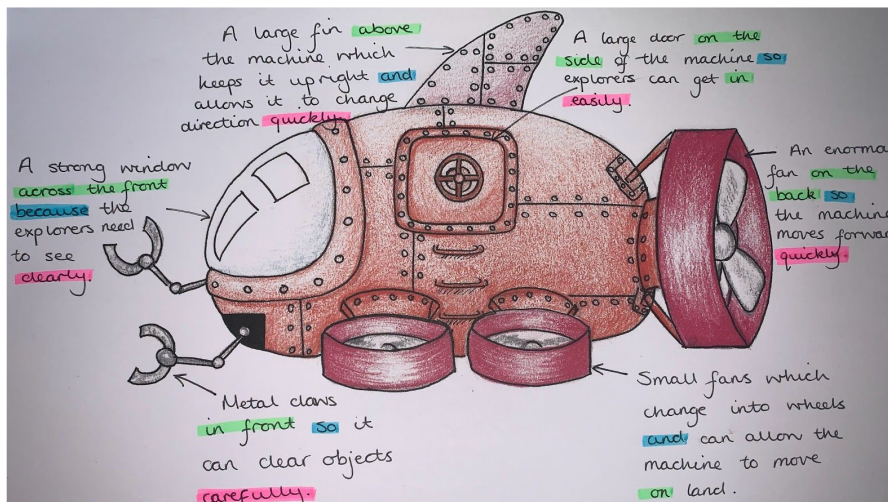 A large fin above
the machine which
keeps it upright and
allows it to change
direction quickly.
A large door on the
side of the machine so
explorers can get in
easily.
A strong window
across the front
because the
explorers need
to see
clearly.
An enorma
fan on the
back so
the machine
moves forwa
quickly.
Metal claws
in front so it
can clear objects
carefully.
Small fans which
change into wheels
and can allow the
machine to move
on land.